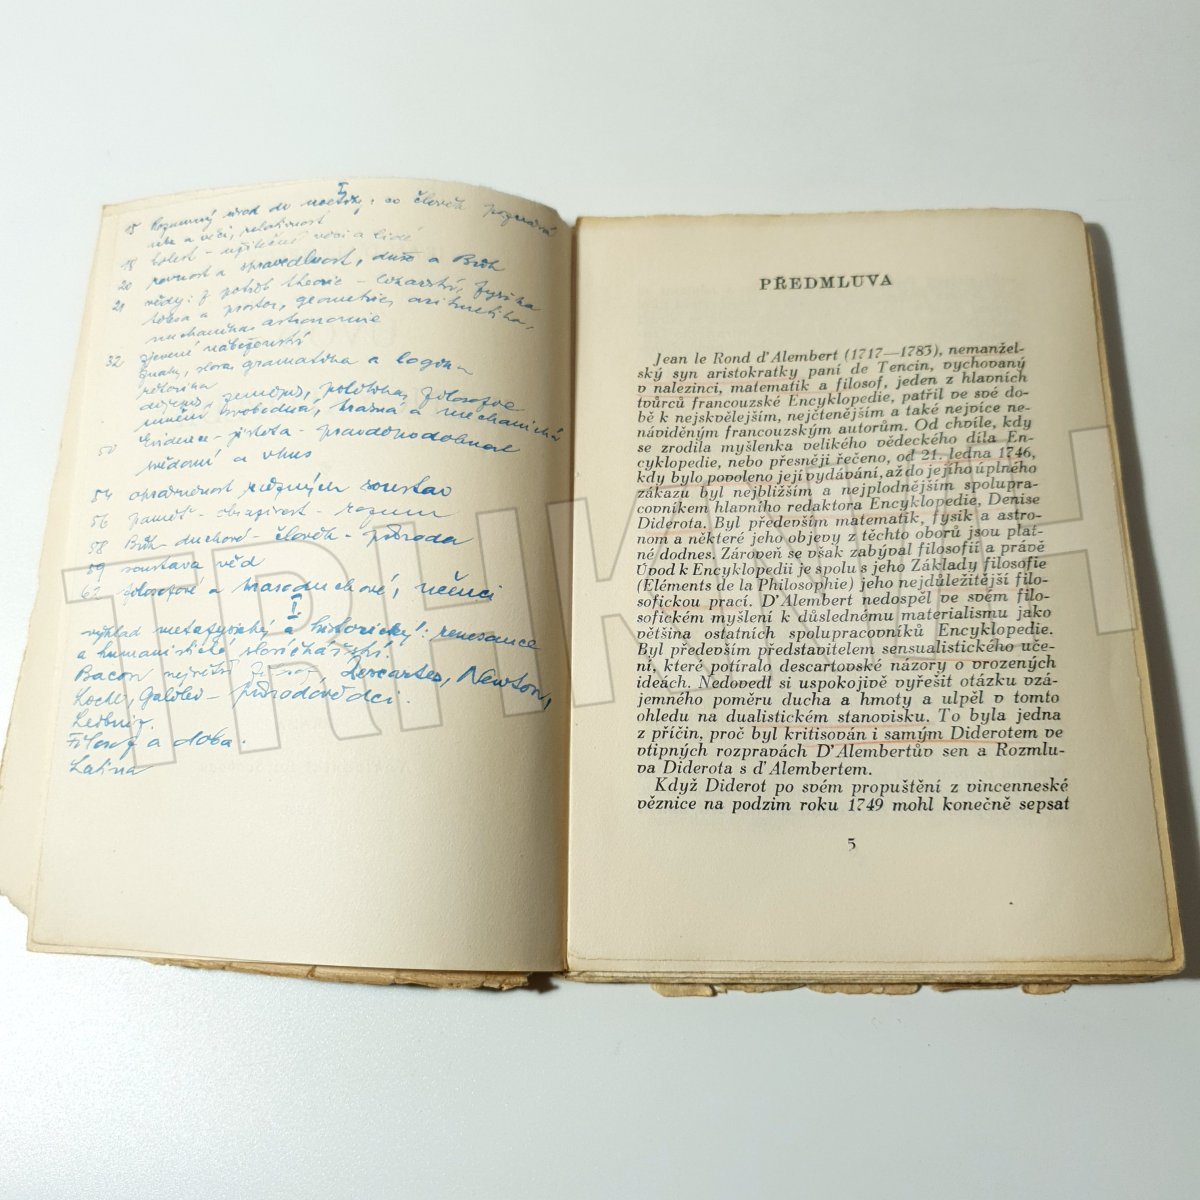 I.
15 Rozumný úvod do noetiky: co člověk poznává
věci, relativnost
18 bolest - užitečné věci a lidé
20 rovnost a spravedlnost, duše a Bůh
21 vědy: z potřeb theorie - lékařství, fyzika
tělesa a prostor, geometrie, aritmetika,
mechanika, astronomie
32 zjevené náboženství
znaky, slova, gramatika a logika
rétorika
zeměpis, politika, filosofie
umění svobodná, krásná a mechanická
50 Evidence - jistota - pravdopodobnost
svědomí a vkus
54 oprávněnost různých soustav
56 paměť - obrazivost - rozum
58 Bůh - duchové - člověk - příroda
59 soustava věd
62 filosofové a krasoduchové, učenci
výklad metafysický a historický!: renesance
a humanistické
Bacon největší filosof, Descartes, Newton,
Locke, Galileo - přírodovědci.
Leibniz.
Filosof a doba.
Latina
PŘEDMLUVA
Jean le Rond d'Alembert (1717—1783), nemanžel-
ský syn aristokratky paní de Tencin, vychovaný
v nalezinci, matematik a filosof, jeden z hlavních
tvůrců francouzské Encyklopedie, patřil ve své do-
bě k nejskvělejším, nejčtenějším a také nejvíce ne-
náviděným francouzským autorům. Od chvíle, kdy
se zrodila myšlenka velikého vědeckého díla En-
cyklopedie, nebo přesněji řečeno, od 21. ledna 1746,
kdy bylo povoleno její vydávání, až do jejího úplného
zákazu byl nejbližším a nejplodnějším spolupra-
covníkem hlavního redaktora Encyklopedie, Denise
Diderota. Byl především matematik, fysik a astro-
nom a některé jeho objevy z těchto oborů jsou plat-
né dodnes. Zároveň se však zabýval filosofií a právě
Úvod k Encyklopedii je spolu s jeho Základy filosofie
(Eléments de la Philosophie) jeho nejdůležitější filo-
sofickou prací. D'Alembert nedospěl ve svém filo-
sofickém myšlení k důslednému materialismu jako
většina ostatních spolupracovníků Encyklopedie.
Byl především představitelem sensualistického uče-
ní, které potíralo descartovské názory o vrozených
ideách. Nedovedl si uspokojivě vyřešit otázku vzá-
jemného poměru ducha a hmoty a ulpěl v tomto
ohledu na dualistickém stanovisku. To byla jedna
z příčin, proč byl kritisován i samým Diderotem ve
vtipných rozpravách D'Alembertův sen a Rozmlu-
va Diderota s d'Alembertem.
Když Diderot po svém propuštění z vincenneské
věznice na podzim roku 1749 mohl konečně sepsat
5
TRHKNIH